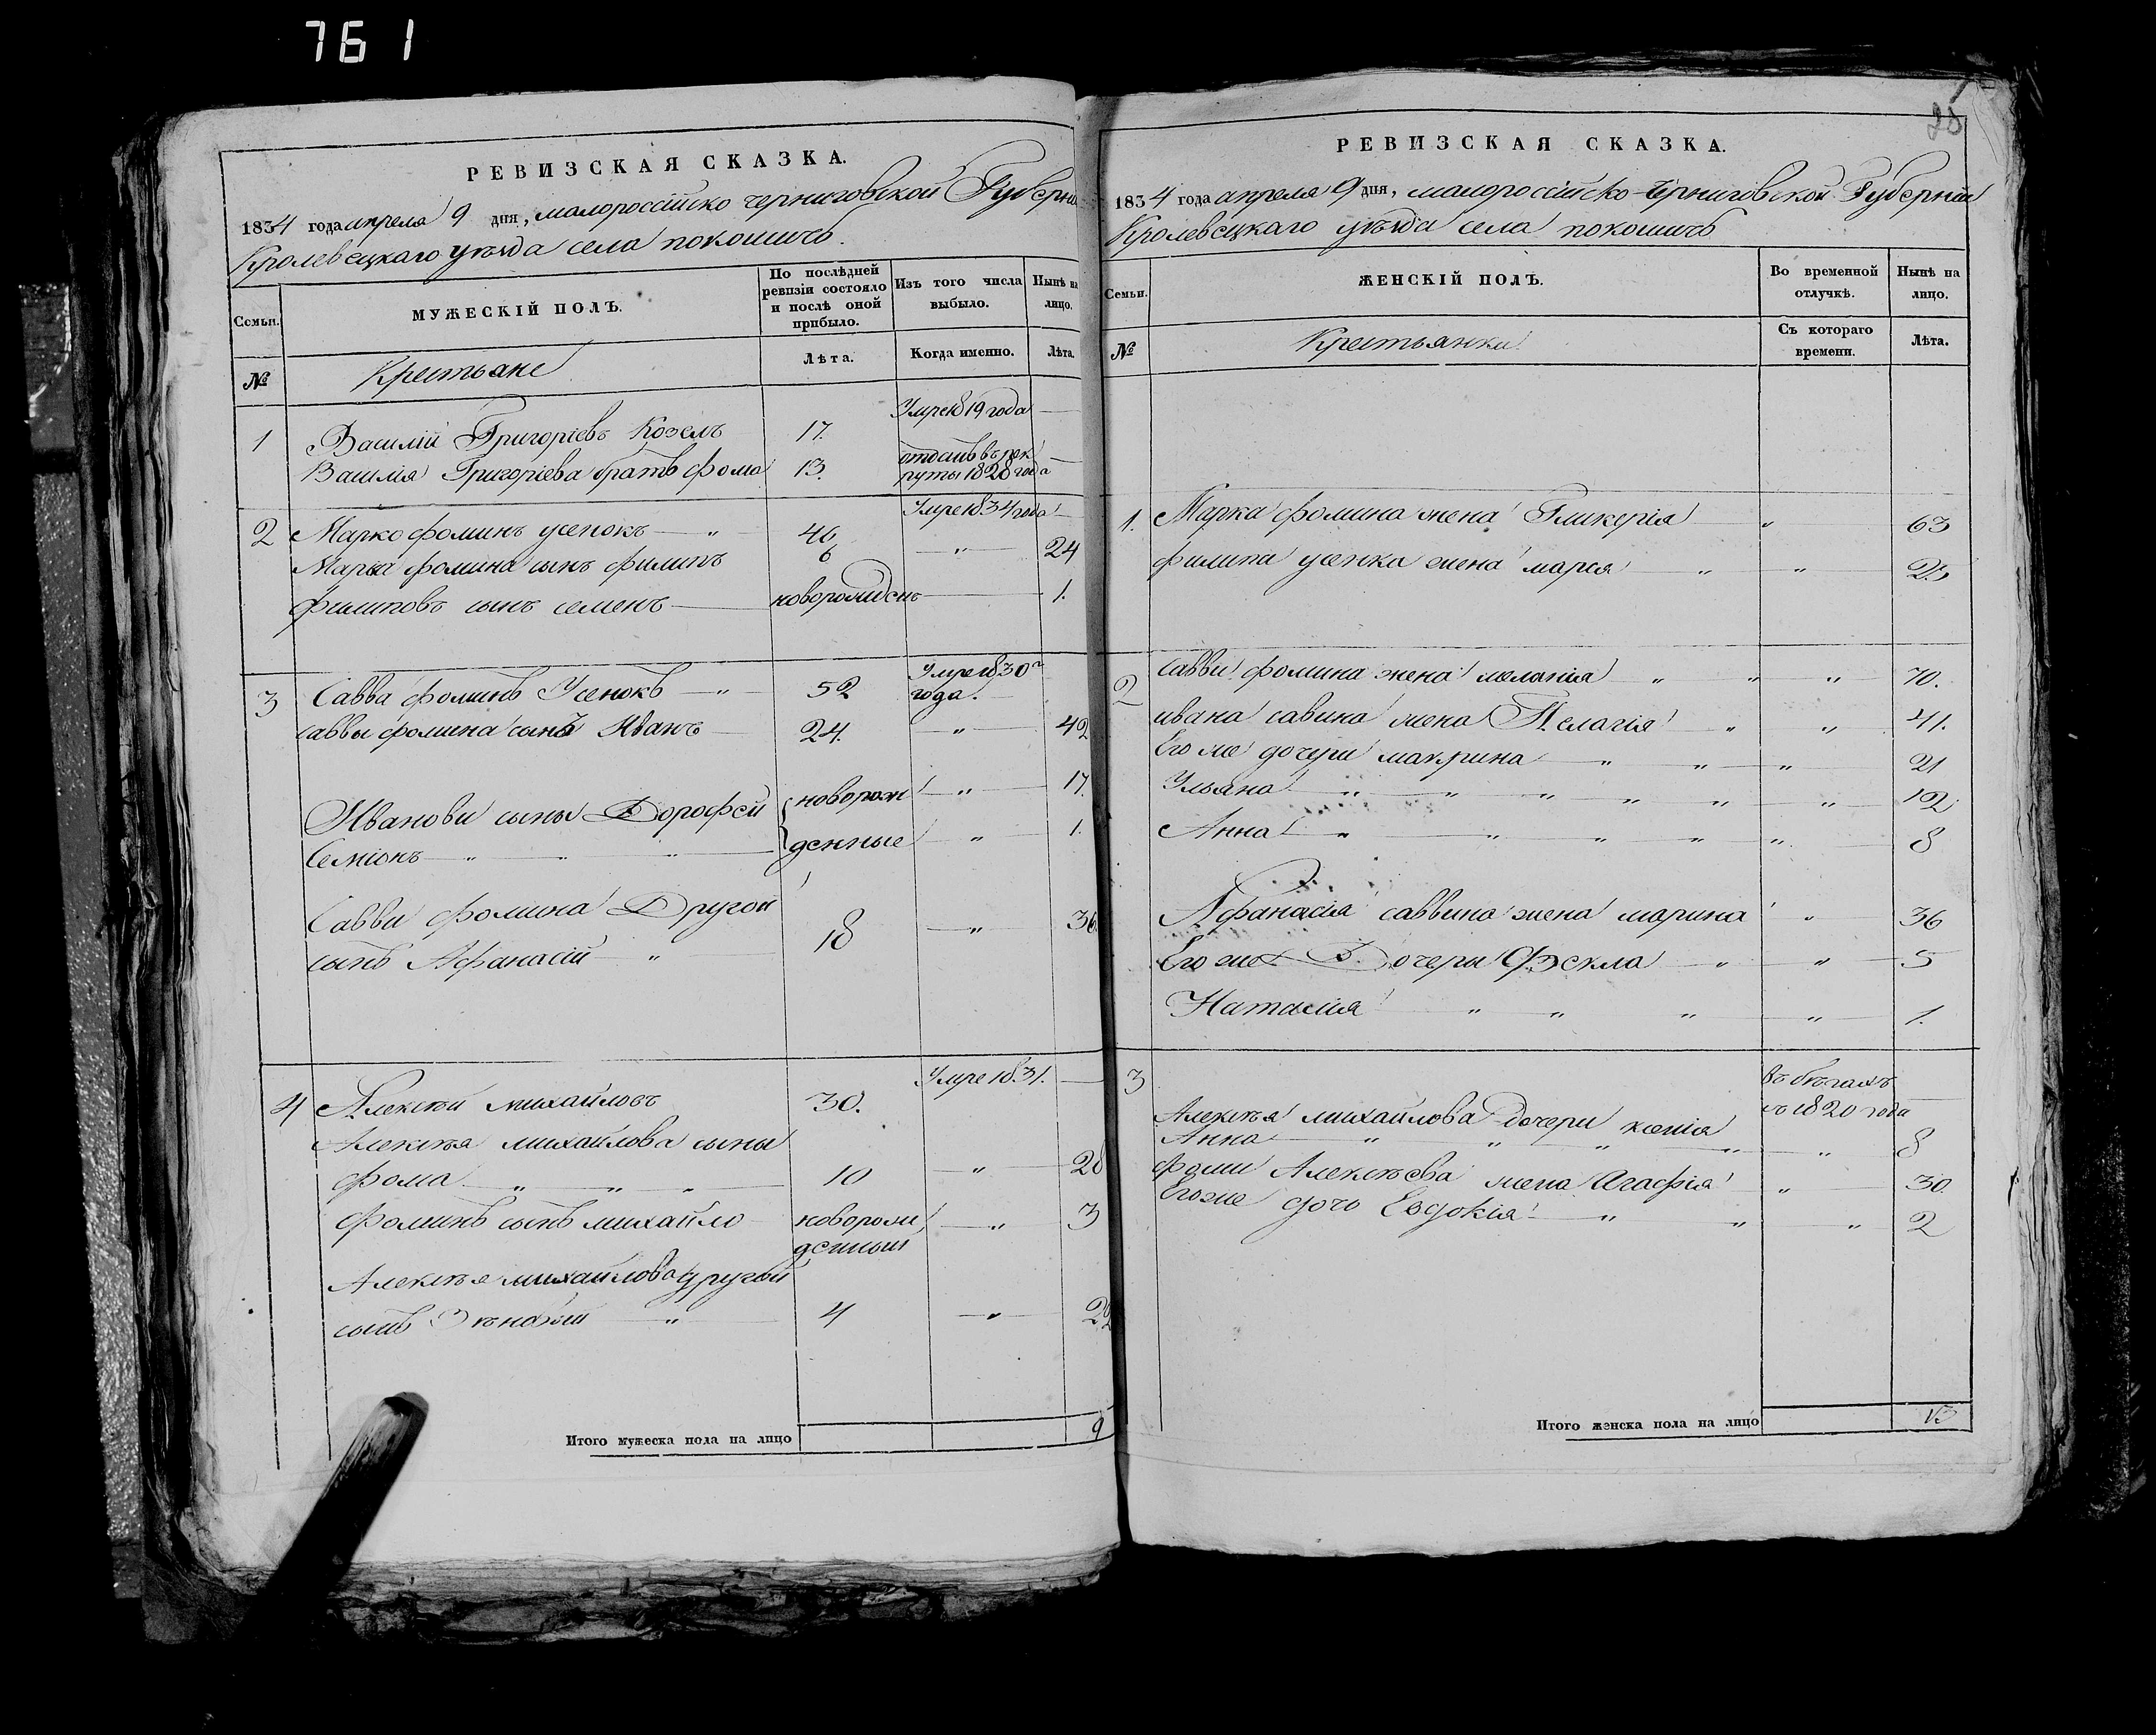 761
РЕВИЗСКАЯ СКАЗКА.
1834 года апреля 9 дня, малороссійско черниговской Губерни
Кролевецкаго уѣзда села покошичь.
Семьи.
МУЖЕСКІЙ ПОЛЪ.
По послѣдней ревизіи состояло и послѣ оной прибыло.
Изъ того числа выбыло.
Нынѣ на лицо.
№
Крестьяне
Лѣта.
Когда именно.
Лѣта.
Умре 1819 года —
1 Василій Григоріевъ Козелъ 17.
отданъ в рек
Василія Григоріева братъ фома 13. руты 1828 года —
Умре 1834 года —
2 Марко фоминъ усенокъ — „ 46
Марка фомина сынъ филипъ 6 — „ — 24
филиповъ сынъ семенъ — новорожденъ — 1.
Умре 1830 г
3 Савва фоминъ Усенокъ — „ 52 года. —
саввы фомина сынъ Иванъ — 24. — „ — 42
Иванови сыны Дорофей новорож — „ — 17.
Семіонъ — „ „ „ — денные — „ — 1.
Савви фомина Другой
сынъ Афанасій — „ — 18 — „ — 36
Умре 1831. —
4 Алексѣй михайловъ 30.
Алексѣя михайлова сыны
фома — „ — „ — „ — 10 — „ — 28
фоминъ сынъ михайло новорож — „ — 3
денный
Алексѣя михайлова другой
сынъ — „ — 4 — „ — 22
Итого мужеска пола на лицо 9
25
РЕВИЗСКАЯ СКАЗКА.
1834 года апреля 9 дня, малороссійско-Черниговской Губерніи
Кролевецкаго уѣзда села покошичь
Семьи.
ЖЕНСКІЙ ПОЛЪ.
Во временной отлучкѣ.
Нынѣ на лицо.
№
Крестьянки
Съ котораго времени.
Лѣта.
1. Марка фомина жена Гликерія — „ — 63
филипа усенка жена марея — „ — „ — 23
2 Савви фомина жена меланія „ „ „ — 70.
ивана савина жена Пелагія — „ „ — 41.
Его же дочери макрина — „ — „ — „ — 21
Ульяна „ „ „ „ „ „ — 12
Анна „ „ „ „ „ — 8
Афанасія саввина жена марина „ — 36
Его же Дочери Фекла — „ — „ — 5
Наталия „ „ „ — „ — 1.
3 въ бѣгахъ
съ 1820 года —
Алексѣя михайлова дочери ксенія
Анна — „ „ „ „ „ — 8
фоми Алексѣева жена Агафія „ — 30.
Его же дочь Евдокія — „ „ „ — 2
Итого женска пола на лицо 13